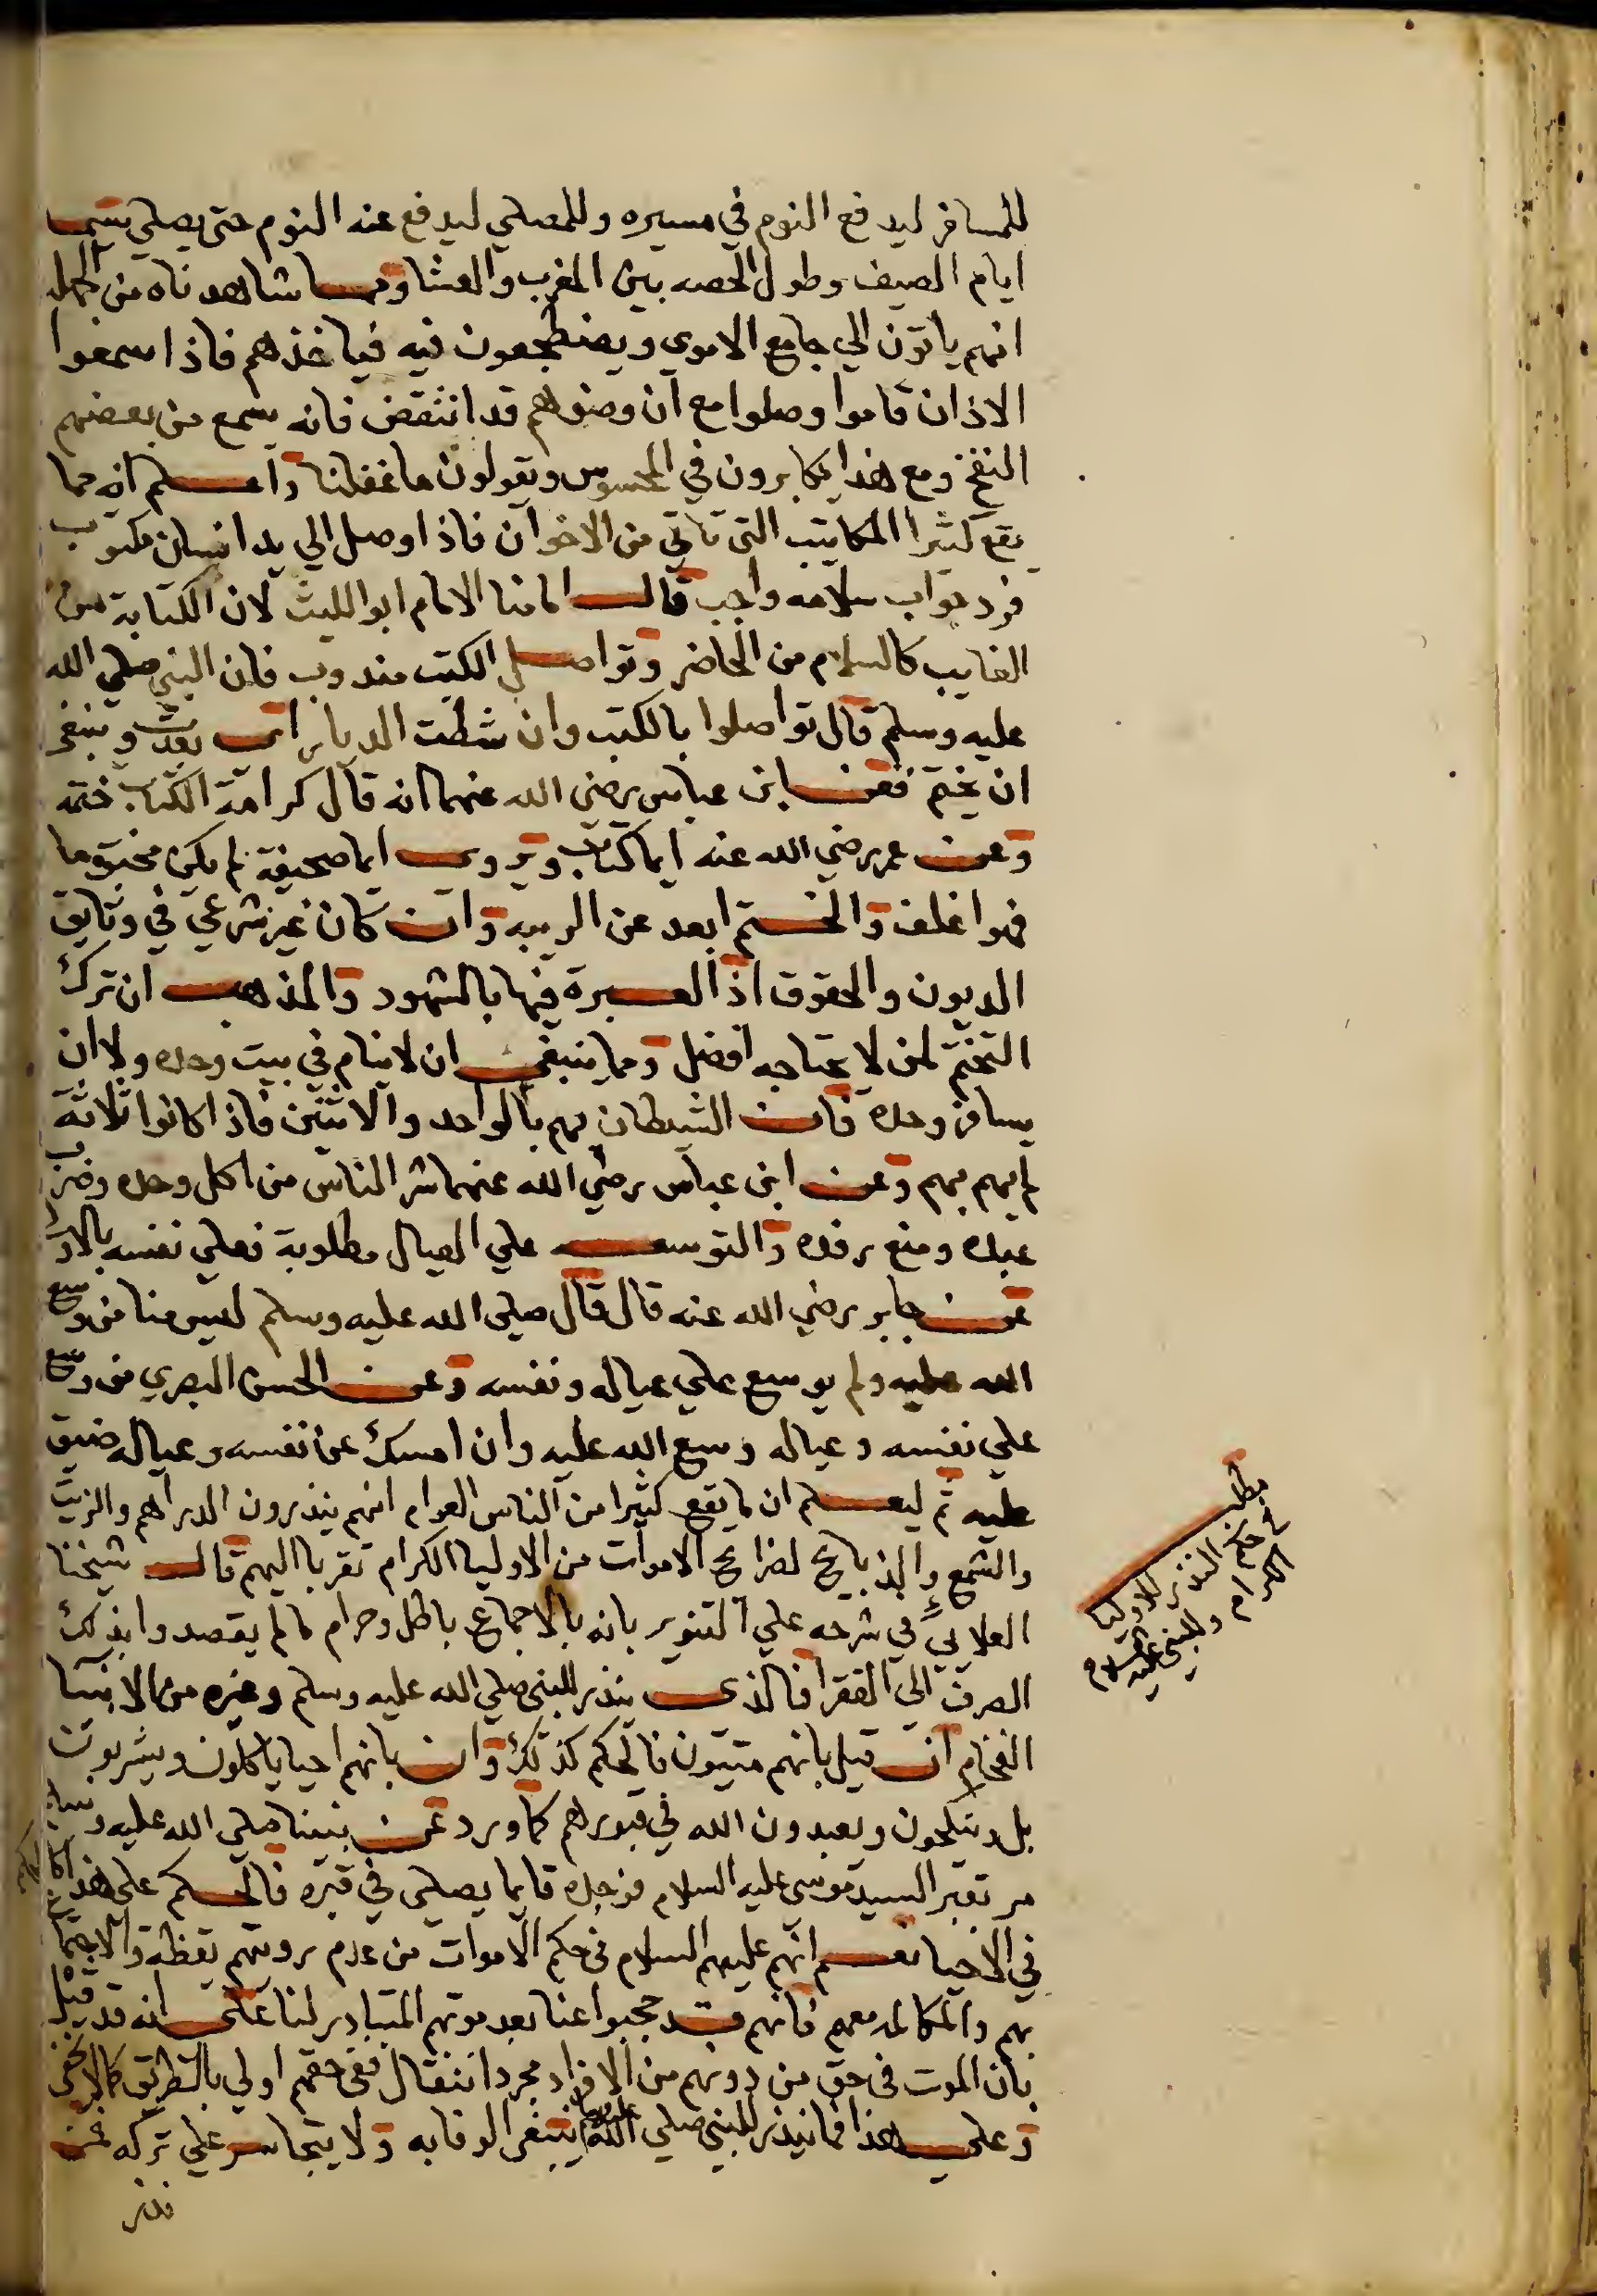 للمسافر ليدفع النوم في مسيره وللمصلي ليدفع عنه النوم حتى يصلي سيما
ايام الصيف وطول الحصه بين المغرب والعشا ومما شاهدناه من الجهل
انهم ياتون الي جامع الاموي ويضطجعون فيه فياخذهم فاذا سمعوا
الاذان قاموا وصلوا مع ان وضوهم قد انتقض فانه يسمع من بعضهم
النفخ ومع هذا يكابرون في المحسوس ويقولون ما غفلنا واعلم انه مما
يقع كثيرا المكاتيب التي تاتي من الاخوان فاذا وصل الي يد انسان مكتوب
فرد جواب سلامه واجب قال امامنا الامام ابو الليث لان الكتابة من
الغايب كالسلام من الحاضر وتواصل الكتب مندوب فان النبي صلي الله
عليه وسلم قال تواصلوا بالكتب وان شطت الديار اي بعدت وينبغي
ان يختم فعن ابن عباس رضي الله عنهما انه قال كرامة الكتاب ختمه
وعن عمر رضي الله عنه ايما كتاب ويروى ايما صحيفة لم يكن مختوما
فهو اغلف والختم ابعد عن الريبه وان كان غير شرعي في وثايق
الديون والحقوق اذ العبرة فيها بالشهود والمذهب ان ترك
التختم لمن لا يحتاجه افضل ومما ينبغي ان لا ينام في بيت وحده ولا ان
يسافر وحده فان الشيطان يهم بالواحد والاثنين فاذا كانوا ثلاثة
لم يهم بهم وعن ابن عباس رضي الله عنهما شر الناس من اكل وحده وضرب
عبده ومنع رفده والتوسعه علي العيال مطلوبة فعلي نفسه بالاولى
عن جابر رضي الله عنه قال قال صلى الله عليه وسلم ليس منا من وسع
الله عليه ولم يوسع علي عياله ونفسه وعن الحسن البصري من وسع
علي نفسه وعياله وسع الله عليه وان امسك عن نفسه وعياله ضيق
عليه ثم ليعلم ان ما يقع كثيرا من الناس العوام انهم ينذرون الدراهم والزيت
والشمع والذبايح لضرايح الاموات من الاوليا الكرام تقربا اليهم قال شيخنا
العلايي في شرحه علي التنوير بانه بالاجماع باطل وحرام ما لم يقصدوا بذلك
الصرف الي الفقرا فالذي ينذر للنبي صلي الله عليه وسلم وغيره من الانبيا
الفخام ان قيل بانهم ميتون فالحكم كذلك وان بانهم احيا ياكلون ويشربون
بل وينكحون ويعبدون الله في قبورهم كما ورد عن نبينا صلي الله عليه وسلم
مر بقبر السيد موسى عليه السلام فوجده قايما يصلي في قبره فالحكم علي هذا كالحكم
في الاحيا نعم انهم عليهم السلام في حكم الاموات من عدم رويتهم يقظة والاجتماع
بهم والمكالمه معهم فانهم قد حجبوا عنا بعد موتهم المتبادر لنا علي انه قد قيل
بان الموت في حق من دونهم من الافراد مجرد انتقال ففي حقهم اولي بالطريق كما لا يخفى
وعلي هذا فما ينذر للنبي صلي الله عليه وسلم ينبغي الوفا به ولا يتجاسر علي تركه فمن
نذر
مطلب
في حكم النذر للاوليا
الكرام وللنبي عليه السلام